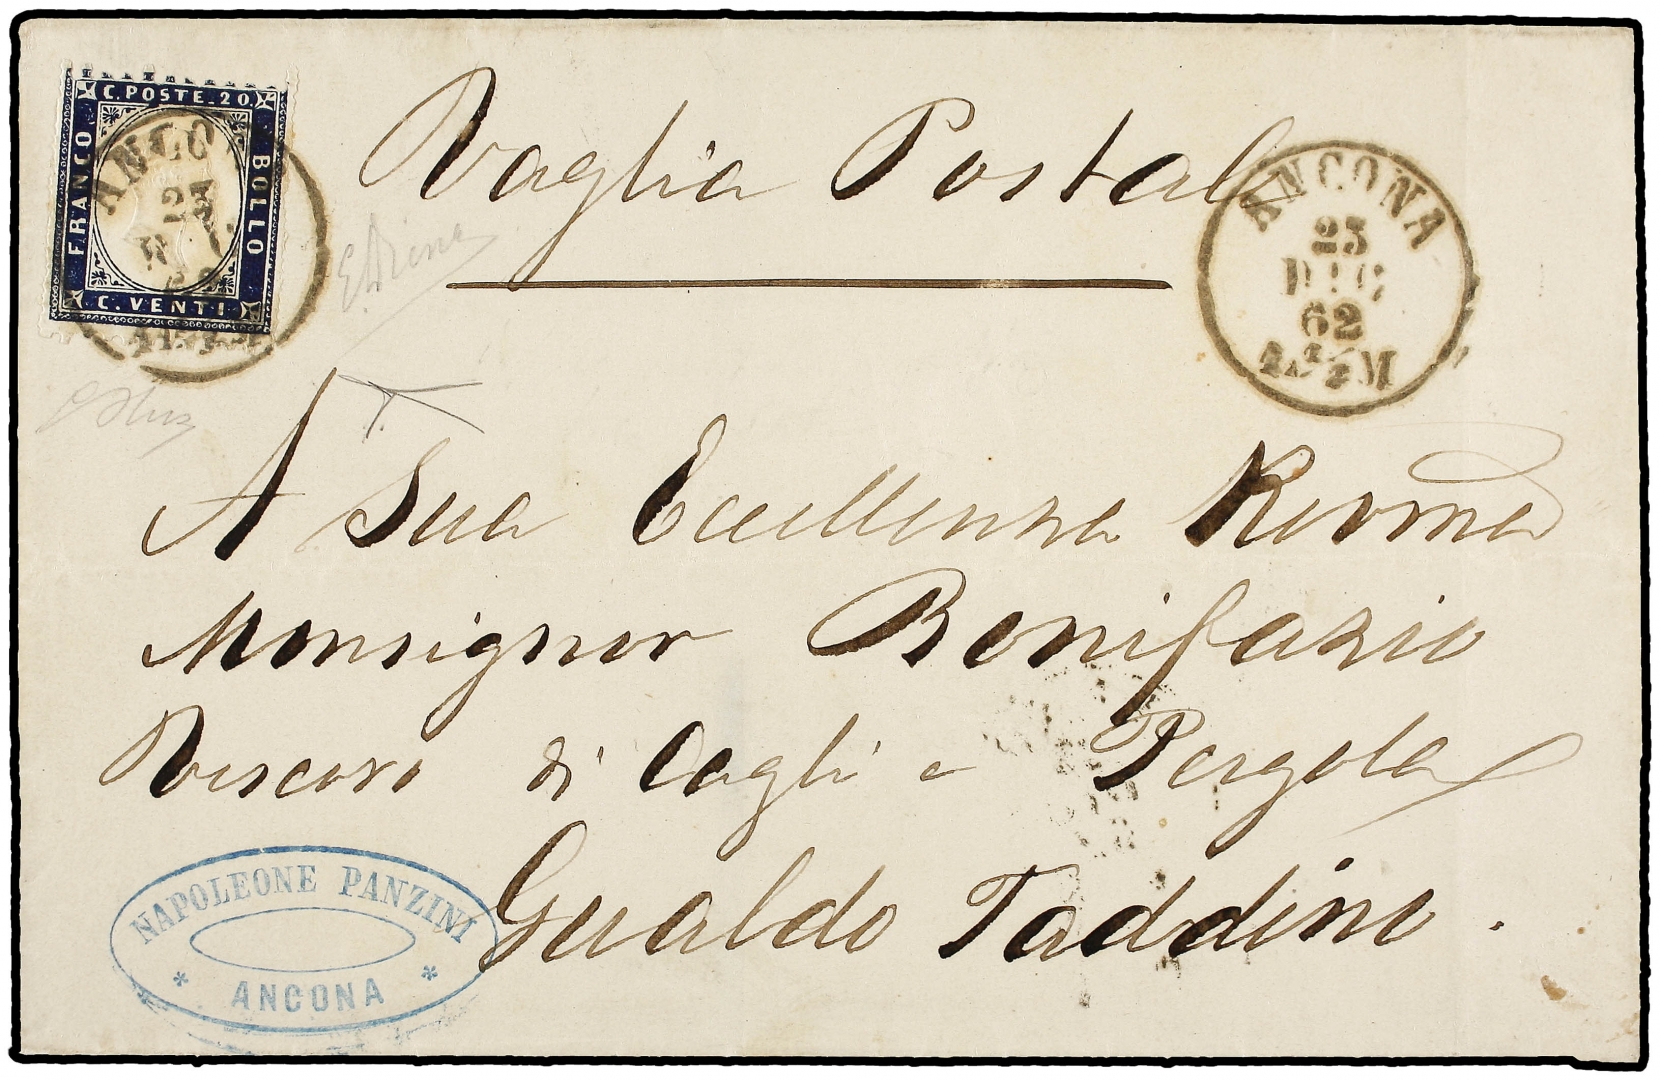 C. POSTE. 20.
FRANCO
BOLLO
C. VENTI
ANCO
23
Vaglia Postale
ANCONA
23
DIC
62
A Sua Eccellenza Revma
Monsignor Bonifazio
Vescovo di Cagli e Pergola
Gualdo Taddino.
NAPOLEONE PANZINI
* ANCONA *